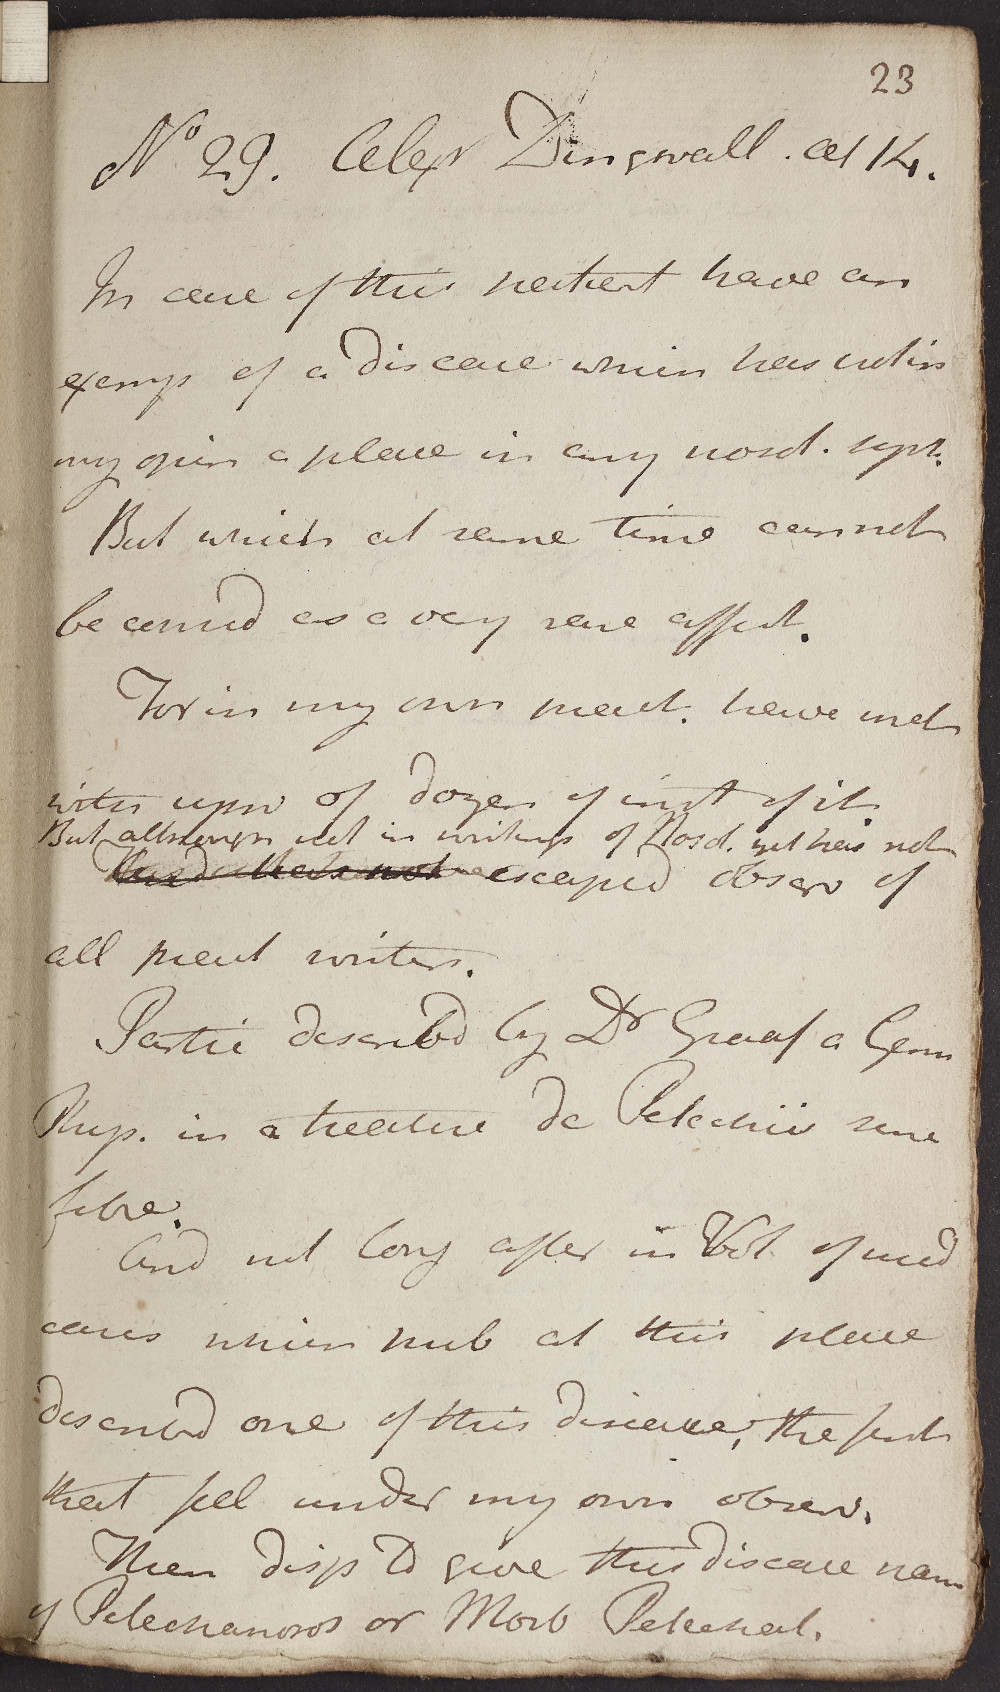 23
No 29. Alexr Dingwall. aet 14.
In case of this patient have an
examp of a disease which has not in
my opin a place in any nosol. syst.
But which at same time cannot
be consid as a very rare affect.
For in my own pract. have met
with upw of dozen of inst of it.
But although not in writings of Nosol. yet has not
escaped observ of
all pract writers.
Partic describd by Dr Graaf a Germ
Phys. in a treatise de Petechiis sine
febre.
And not long after in Vol of med
cases which pub at this place
describd one of this disease, the first
that fell under my own observ.
Then disp to give this disease name
of Petechanosos or Morb Petechial.